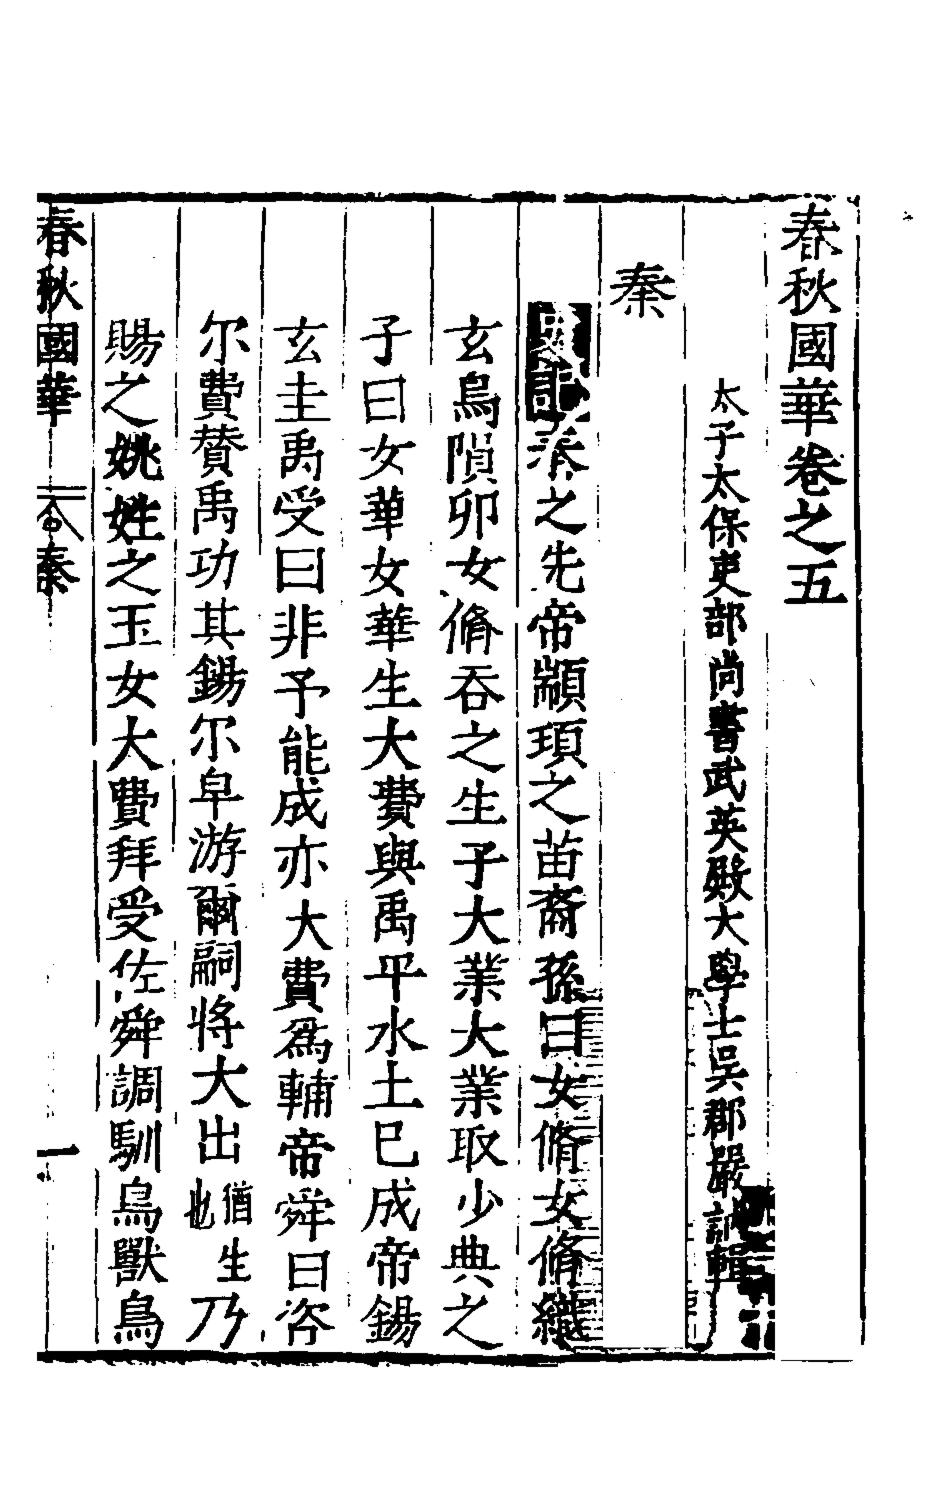 春秋國華卷之五
太子太保吏部尚書武英殿大學士吳郡嚴訥輯
秦
史記秦之先帝顓頊之苗裔孫曰女脩女脩織
玄鳥隕卵女脩吞之生子大業大業取少典之
子曰女華女華生大費與禹平水土已成帝錫
玄圭禹受曰非予能成亦大費爲輔帝舜曰咨
尓費賛禹功其錫尓皁游爾嗣將大出猶生也乃
賜之姚姓之玉女大費拜受佐舜調馴鳥獸鳥
春秋國華 秦 一